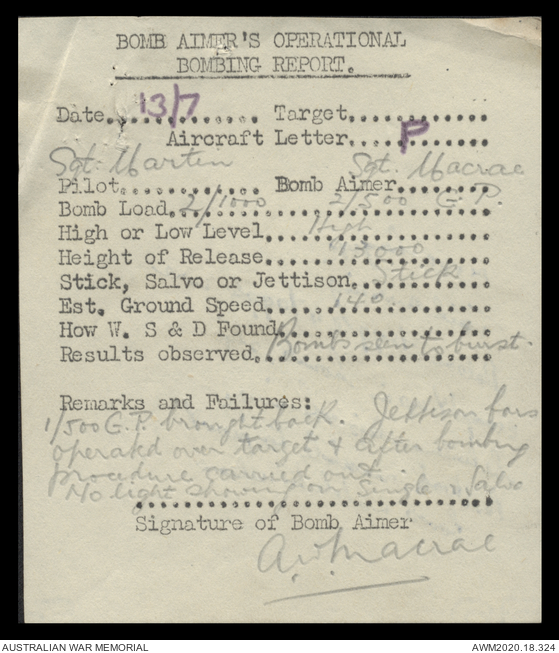 BOMB AIMER'S OPERATIONAL
BOMBING REPORT.
Date 13/7 Target
Aircraft Letter P
Sgt. Marten Sgt. Macrae
Pilot Bomb Aimer
Bomb Load 2/1000 2/500 G.P.
High or Low Level High
Height of Release 13000
Stick, Salvo or Jettison. Stick
Est. Ground Speed 140
How W. S & D Found
Results observed. Bombs seen to burst.
Remarks and Failures:
1/500 G.P. brought back. Jettison bars
operated over target & after bombing
procedure carried out.
No light showing on Single & Salvo
Signature of Bomb Aimer
A.W. Macrae
AUSTRALIAN WAR MEMORIAL AWM2020.18.324